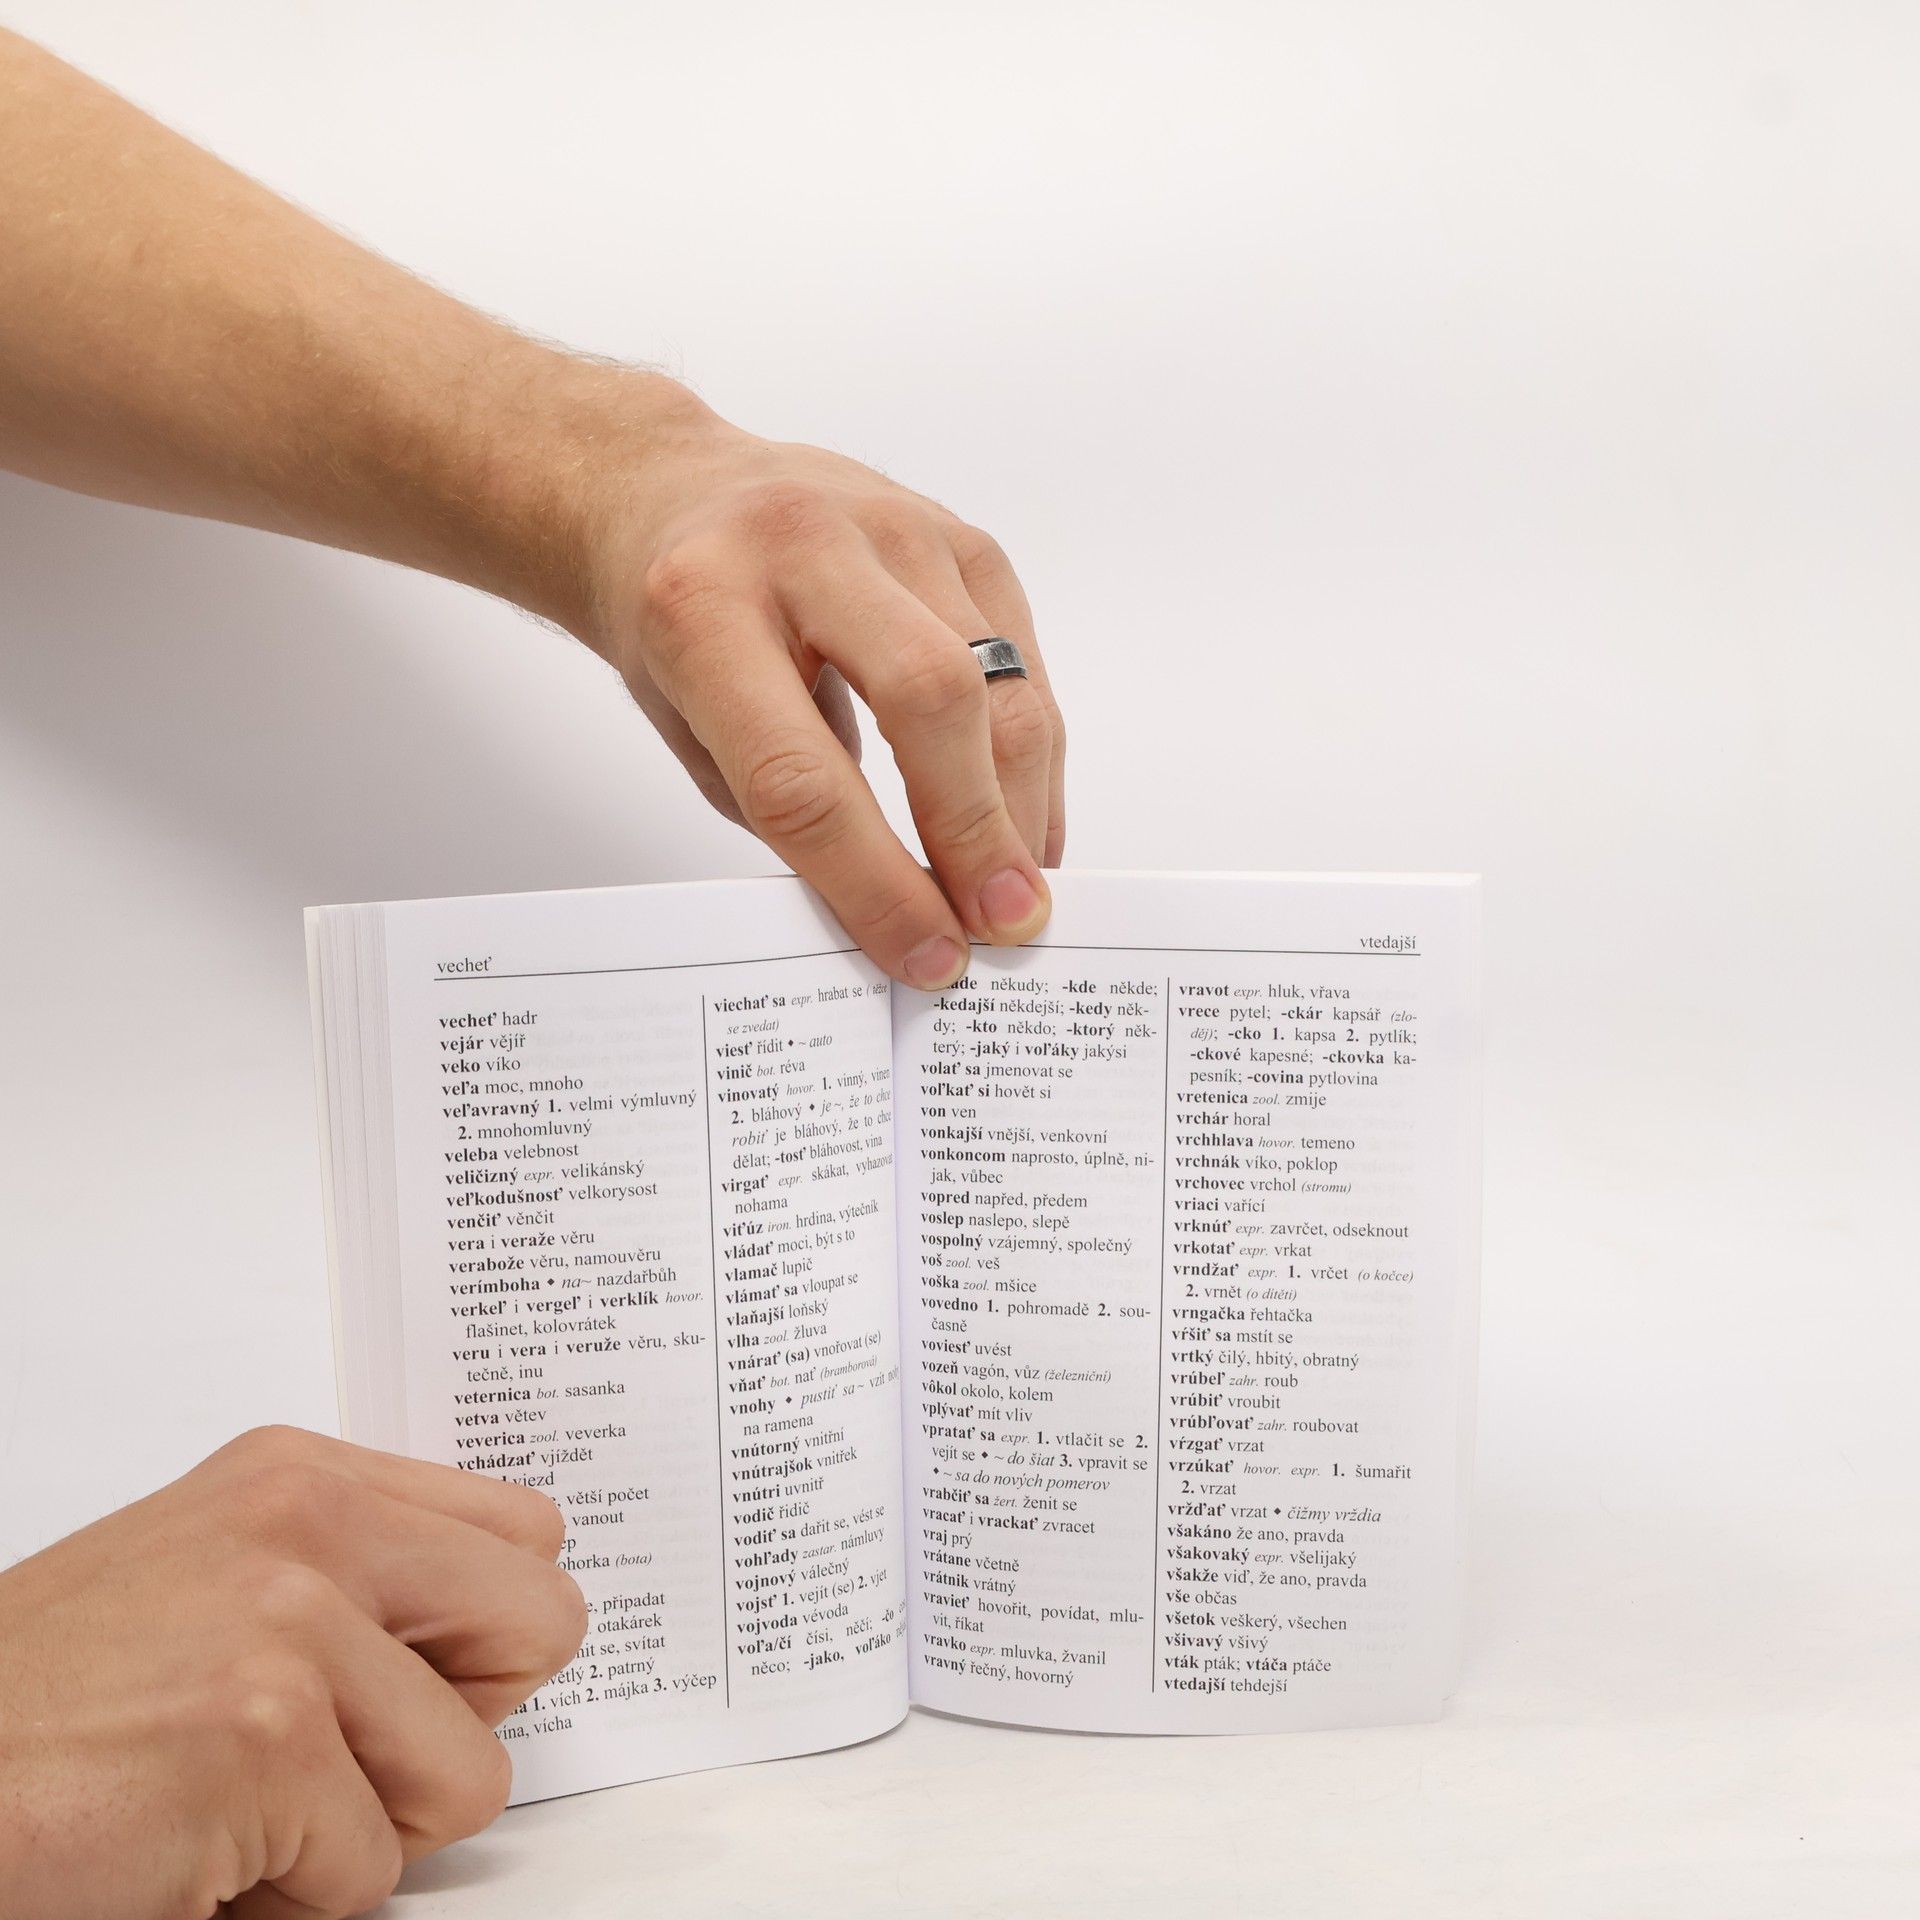 vecheť
vecheť hadr
vejár vějíř
veko víko
veľa moc, mnoho
veľavravný 1. velmi výmluvný
2. mnohomluvný
veleba velebnost
veličizný expr. velikánský
veľkodušnosť velkorysost
venčiť věnčit
vera i veraže věru
verabože věru, namouvěru
verímboha ◆ na~ nazdařbůh
verkeľ i vergeľ i verklík hovor.
flašinet, kolovrátek
veru i vera i veruže věru, sku-
tečně, inu
veternica bot. sasanka
vetva větev
veverica zool. veverka
vchádzať vjíždět
vjezd
, větší počet
, vanout
(bota)
, připadat
. otakárek
se, svítat
2. patrný
1. vích 2. májka 3. výčep
vína, vícha
viechať sa expr. hrabat se ( těžce
se zvedat)
viesť řídit ◆ ~ auto
vinič bot. réva
vinovatý hovor. 1. vinný, vinen
2. bláhový ◆ je ~, že to chce
robiť je bláhový, že to chce
dělat; -tosť bláhovost, vina
virgať expr. skákat, vyhazovat
nohama
viťúz iron. hrdina, výtečník
vládať moci, být s to
vlamač lupič
vlámať sa vloupat se
vlaňajší loňský
vlha zool. žluva
vnárať (sa) vnořovat (se)
vňať bot. nať (bramborová)
vnohy ◆ pustiť sa ~ vzít nohy
na ramena
vnútorný vnitřní
vnútrajšok vnitřek
vnútri uvnitř
vodič řidič
vodiť sa dařit se, vést se
vohľady zastar. námluvy
vojnový válečný
vojsť 1. vejít (se) 2. vjet
vojvoda vévoda
voľa/čí čísi, něčí; -čo
něco; -jako, voľáko
vtedajší
někudy; -kde někde;
-kedajší někdejší; -kedy něk-
dy; -kto někdo; -ktorý něk-
terý; -jaký i voľáky jakýsi
volať sa jmenovat se
voľkať si hovět si
von ven
vonkajší vnější, venkovní
vonkoncom naprosto, úplně, ni-
jak, vůbec
vopred napřed, předem
voslep naslepo, slepě
vospolný vzájemný, společný
voš zool. veš
voška zool. mšice
vovedno 1. pohromadě 2. sou-
časně
voviesť uvést
vozeň vagón, vůz (železniční)
vôkol okolo, kolem
vplývať mít vliv
vpratať sa expr. 1. vtlačit se 2.
vejít se ◆ ~ do šiat 3. vpravit se
◆ ~ sa do nových pomerov
vrabčiť sa žert. ženit se
vracať i vrackať zvracet
vraj prý
vrátane včetně
vrátnik vrátný
vravieť hovořit, povídat, mlu-
vit, říkat
vravko expr. mluvka, žvanil
vravný řečný, hovorný
vravot expr. hluk, vřava
vrece pytel; -ckár kapsář (zlo-
děj); -cko 1. kapsa 2. pytlík;
-ckové kapesné; -ckovka ka-
pesník; -covina pytlovina
vretenica zool. zmije
vrchár horal
vrchhlava hovor. temeno
vrchnák víko, poklop
vrchovec vrchol (stromu)
vriaci vařící
vrknúť expr. zavrčet, odseknout
vrkotať expr. vrkat
vrndžať expr. 1. vrčet (o kočce)
2. vrnět (o dítěti)
vrngačka řehtačka
vŕšiť sa mstít se
vrtký čilý, hbitý, obratný
vrúbeľ zahr. roub
vrúbiť vroubit
vrúbľovať zahr. roubovat
vŕzgať vrzat
vrzúkať hovor. expr. 1. šumařit
2. vrzat
vržďať vrzat ◆ čižmy vrždia
všakáno že ano, pravda
všakovaký expr. všelijaký
všakže viď, že ano, pravda
vše občas
všetok veškerý, všechen
všivavý všivý
vták pták; vtáča ptáče
vtedajší tehdejší